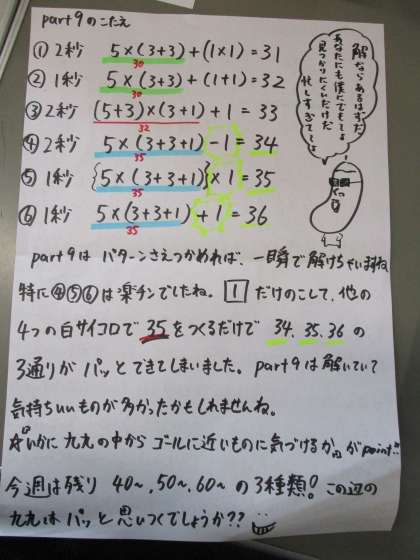 part9のこたえ
① 2秒 5×(3+3)+(1×1)=31
30
② 1秒 5×(3+3)+(1+1)=32
30
③ 2秒 (5+3)×(3+1)+1=33
32
④ 2秒 5×(3+3+1)-1=34
35
⑤ 1秒 {5×(3+3+1)}×1=35
35
⑥ 1秒 5×(3+3+1)+1=36
35
解ならあるはずだ
あなたにも僕にでもでしょ
見つかりにくいだけだ
忙しすぎてでしょ
part9は パターンさえつかめれば、一瞬で解けちゃいますね
特に④⑤⑥は楽チンでしたね。1だけのこして、他の
4つの白サイコロで 35 をつくるだけで 34. 35. 36 の
3通りが パッとできてしまいました。part9は解いていて
気持ちいいものが多かったかもしれませんね。
☆『いかに九九の中から ゴールに近いものに気づけるか。』がpoint!!
今週は残り 40〜,50〜,60〜 の3種類! この辺の
九九は パッと思いつくでしょうか??